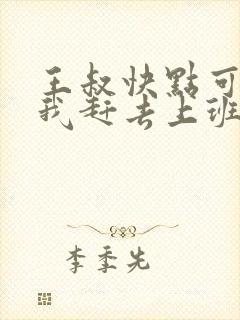 王叔快點可
我赶去上班
李季先